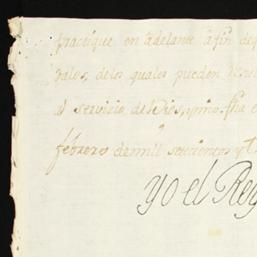 practique en adelante afin de q
rales, delos quales pueden
al servicio de Dios, y mio. fha e
febrero de mil setecientos y t
yo el Rey